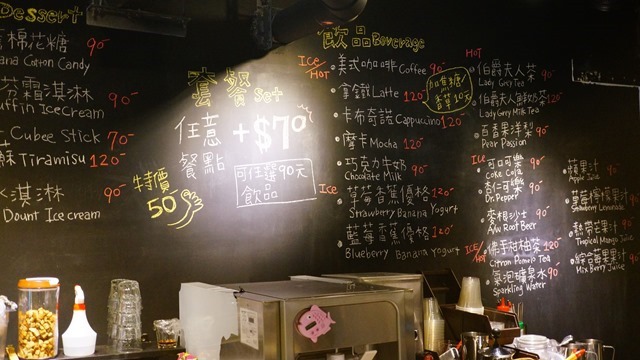 Dessert
棉花糖 90-
ana Cotton Candy
芬霜淇淋 90-
uffin IceCream
Cubee Stick 70-
酥 Tiramisu 120-
淇淋 90-
Dount Ice cream
套餐 Set
任意
餐點
+$70
可任選90元
飲品
特價
50
飲品 Beverage
ICE/HOT
美式咖啡 Coffee 90-
拿鐵 Latte 120-
卡布奇諾 Cappuccino 120-
摩卡 Mocha 120-
巧克力牛奶 90-
Chocolate Milk
ICE
草莓香蕉優格 120-
Strawberry Banana Yogurt
藍莓香蕉優格 120-
Blueberry Banana Yogurt
加焦糖
10元
HOT
伯爵夫人茶 90-
Lady Grey Tea
伯爵夫人鮮奶茶 120-
Lady Grey Milk Tea
百香果洋梨 90-
Pear Passion
ICE
可口可樂 90-
Coke Cola
杏仁可樂 90-
Dr. Pepper
麥根沙士 90-
A/W Root Beer
ICE/HOT
佛手柑柚茶 120-
Citron Pomelo Tea
氣泡礦泉水 90-
Sparkling Water
蘋果汁
Apple Juice
草莓檸檬果汁
Strawberry Lemonade
熱帶芒果汁
Tropical Mango Juice
綜合莓果果汁
Mix Berry Juice